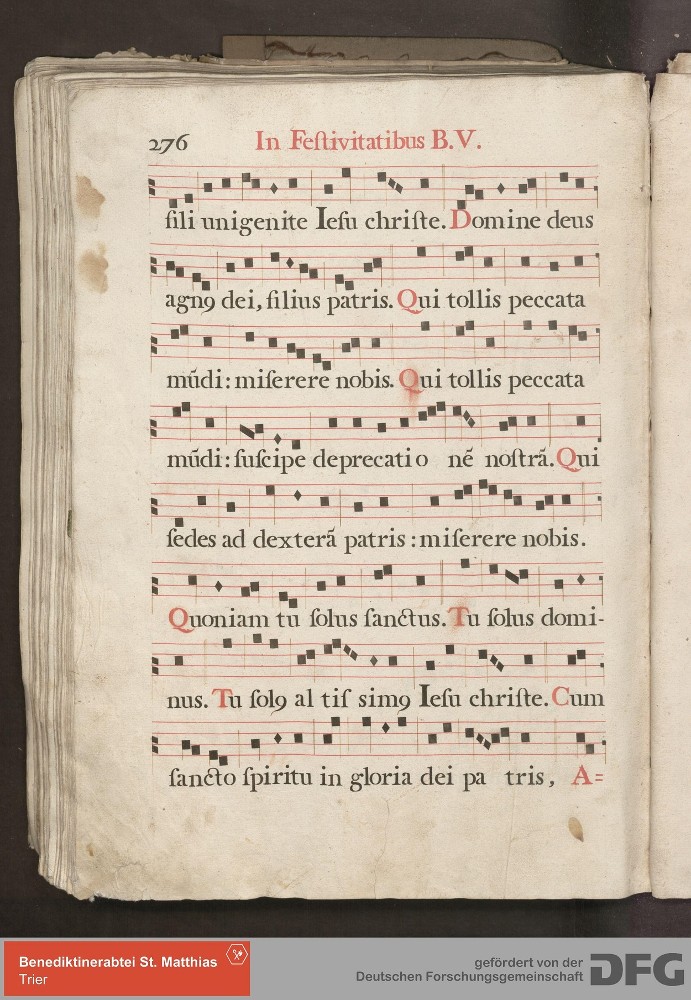 276 In Feſtivitatibus B.V.
fili unigenite Ieſu chriſte. Domine deus
agnꝯ dei, filius patris. Qui tollis peccata
mūdi: miſerere nobis. Qui tollis peccata
mūdi: ſuſcipe deprecatio nē noſtrā. Qui
ſedes ad dexterā patris : miſerere nobis.
Quoniam tu ſolus ſanctus. Tu ſolus domi-
nus. Tu ſolꝯ al tiſ simꝯ Ieſu chriſte. Cum
ſancto ſpiritu in gloria dei pa tris, A=
Benediktinerabtei St. Matthias
Trier
gefördert von der
Deutschen Forschungsgemeinschaft
DFG